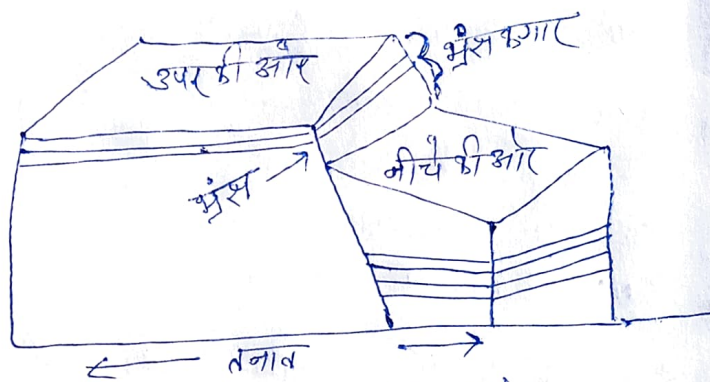 उपर की ओर
भ्रंस कगार
भ्रंस
नीचे की ओर
तनाव